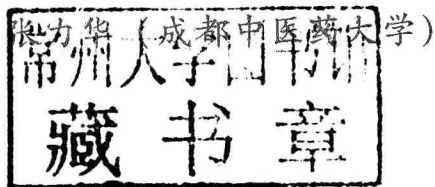 张力华（成都中医药大学）
常州大学图书馆
藏书章